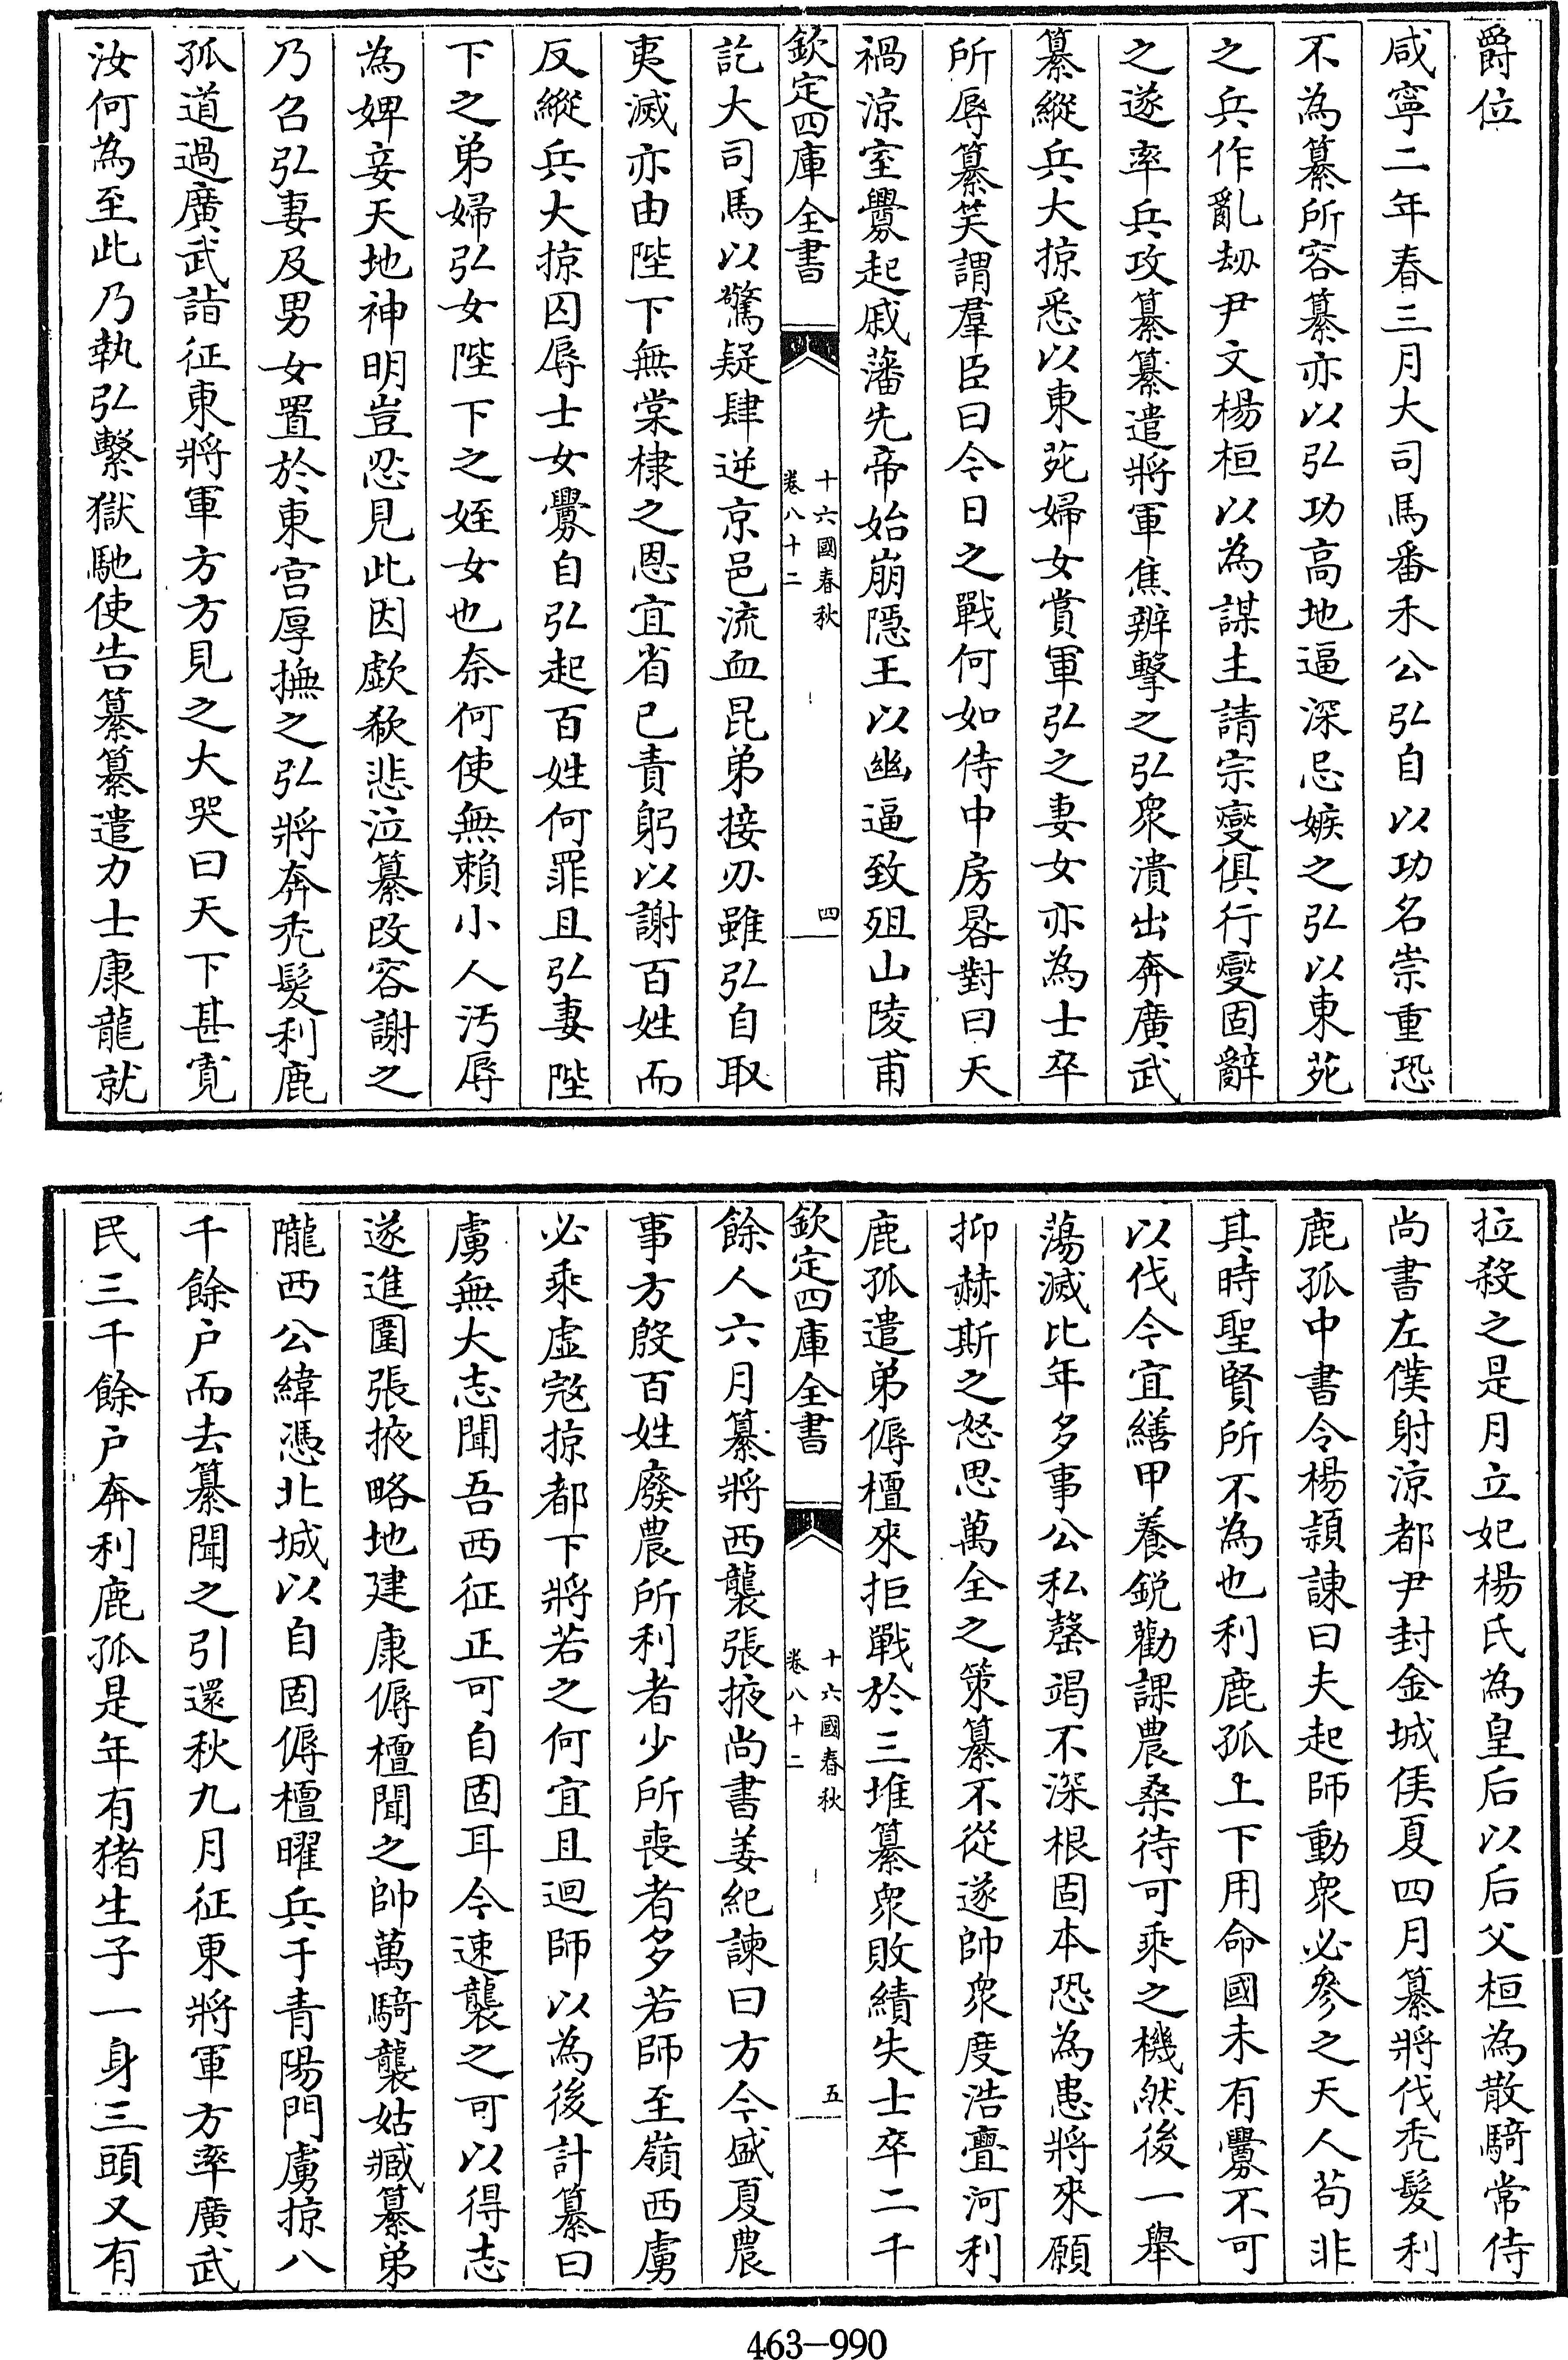 爵位
咸寧二年春三月大司馬番禾公弘自以功名崇重恐
不為纂所容纂亦以弘功高地逼深忌嫉之弘以東苑
之兵作亂刼尹文楊桓以為謀主請宗燮俱行燮固辭
之遂率兵攻纂纂遣將軍焦辨擊之弘衆潰出奔廣武
纂縱兵大掠悉以東苑婦女賞軍弘之妻女亦為士卒
所辱纂笑謂羣臣曰今日之戰何如侍中房晷對曰天
禍涼室釁起戚藩先帝始崩隱王以幽逼致殂山陵甫
欽定四庫全書
十六國春秋
卷八十二
四
訖大司馬以驚疑肆逆京邑流血昆弟接刃雖弘自取
夷滅亦由陛下無棠棣之恩宜省己責躬以謝百姓而
反縱兵大掠囚辱士女釁自弘起百姓何罪且弘妻陛
下之弟婦弘女陛下之姪女也奈何使無賴小人汚辱
為婢妾天地神明豈忍見此因歔欷悲泣纂改容謝之
乃召弘妻及男女置於東宫厚撫之弘將奔禿髮利鹿
孤道過廣武詣征東將軍方方見之大哭曰天下甚寬
汝何為至此乃執弘繫獄馳使告纂纂遣力士康龍就
拉殺之是月立妃楊氏為皇后以后父桓為散騎常侍
尚書左僕射涼都尹封金城侯夏四月纂將伐禿髮利
鹿孤中書令楊頴諫曰夫起師動衆必參之天人苟非
其時聖賢所不為也利鹿孤上下用命國未有釁不可
以伐今宜繕甲養鋭勸課農桑待可乘之機然後一舉
蕩滅比年多事公私罄竭不深根固本恐為患將來願
抑赫斯之怒思萬全之策纂不從遂帥衆度浩亹河利
鹿孤遣弟傉檀來拒戰於三堆纂衆敗績失士卒二千
欽定四庫全書
十六國春秋
卷八十二
五
餘人六月纂將西襲張掖尚書姜紀諫曰方今盛夏農
事方殷百姓廢農所利者少所喪者多若師至嶺西虜
必乘虚寇掠都下將若之何宜且迴師以為後計纂曰
虜無大志聞吾西征正可自固耳今速襲之可以得志
遂進圍張掖略地建康傉檀聞之帥萬騎襲姑臧纂弟
隴西公緯憑北城以自固傉檀曜兵于青陽門虜掠八
千餘户而去纂聞之引還秋九月征東將軍方率廣武
民三千餘户奔利鹿孤是年有猪生子一身三頭又有
463-990